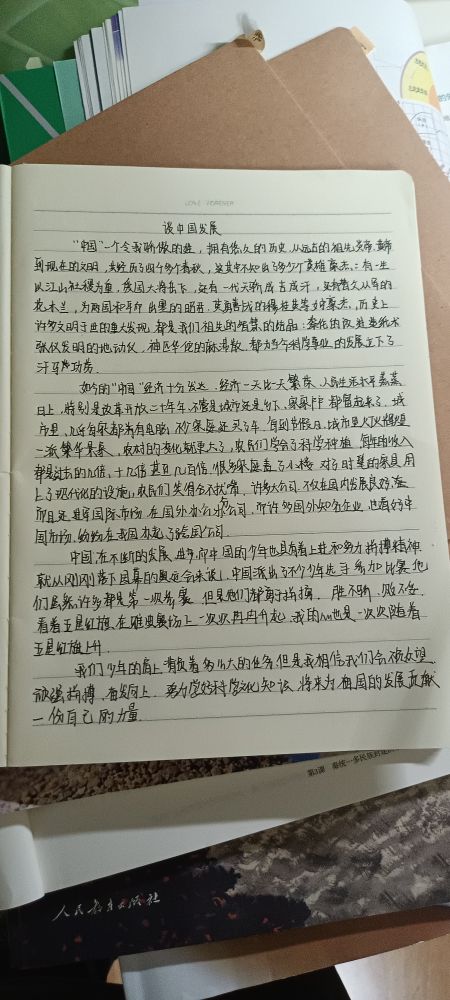 LOVE FOREVER
谈中国发展
"中国"一个令我骄傲的名, 拥有悠久的历史. 从远古的祖先炎帝. 黄帝
到现在的文明, 经历了四千多个春秋, 这其中不知出了多少个英雄豪杰:有一生
以江山社稷为重, 有一代天骄成吉思汗, 还有替父从军的
花木兰, 为两国和平作出塞的昭君. 历史上
许多文明于世的重大发现, 都是我们祖先的智慧的结晶: 蔡伦的改进造纸术
张仪发明的地动仪, 神医华佗的麻沸散, 都为今个科学事业的发展立下了
汗马功劳.
如今的"中国"经济十分发达, 经济一天比一天繁荣, 人民生活水平蒸蒸
日上, 特别是改革开放二十年年, 不管是城市还是乡下, 家家户户都富起来了, 城
市里, 几乎每家都有电脑, 每到节假日, 城市里人们
一派繁华景象, 农村的变化就更大了, 农民们学会了科学种植, 每年的收入
都是过去的几倍, 十几倍甚至几百倍, 很多家庭盖了小楼, 家具用
上了现代化的设施, 农民们笑得合不拢嘴, 许多大公司, 不仅在国内发展良好
而且还进军国际市场, 在国外办分公司, 而许多国外知名企业, 也看好中
国市场, 纷纷在我国办起了跨国公司.
中国, 在不断的发展, 中国的少年也具有着上进和努力拼搏精神
就从刚刚落下帷幕的奥运会来说, 中国派出了不少少年选手参加比赛, 他
们虽然许多都是第一次参赛, 但是他们都勇于拼搏, 胜不骄, 败不馁,
看着五星红旗, 在雅典赛场上一次次冉冉升起, 我的心也是一次次随着
五星红旗上升.
我们少年的肩上, 肩负着多么大的任务, 但是我相信我们会不负众望
顽强拼搏, 奋发向上, 努力学好科学文化知识, 将来为祖国的发展贡献
一份自己的力量.
第3课 秦统一多民族封建
人民教育出版社